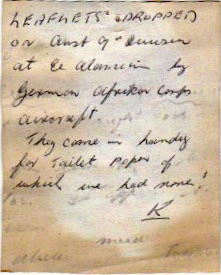 LEAFLETS DROPPED
on Aust 9th Division
at El Alamein by
German Afrika Corps
aircraft.
They came in handy
for Toilet Paper of
which we had none!
K